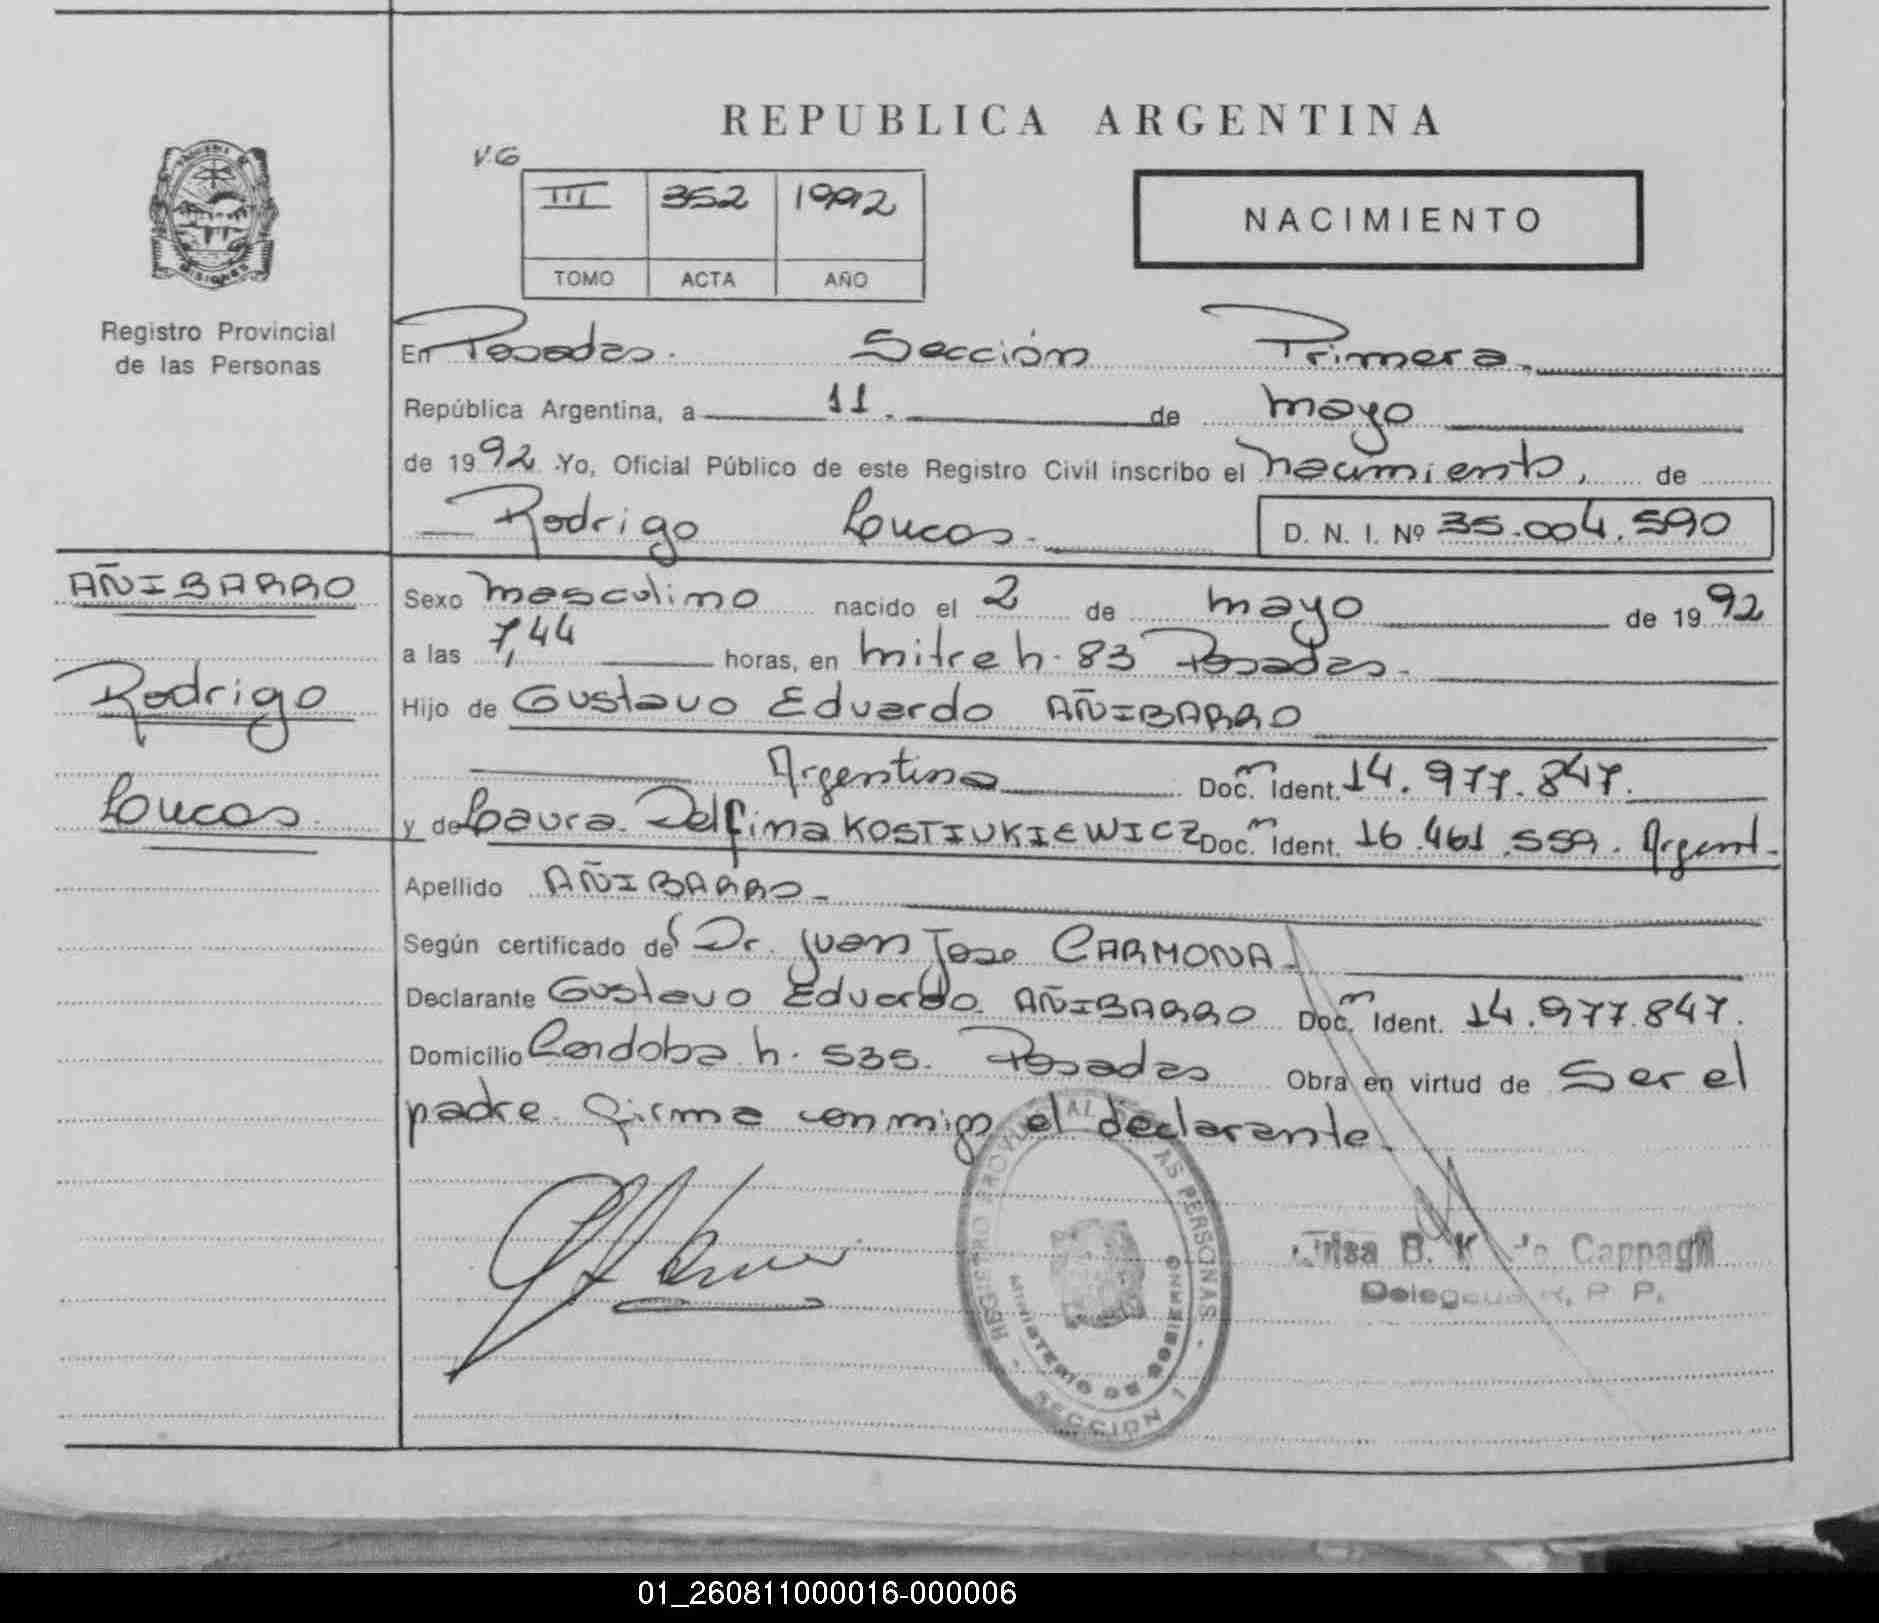 REPUBLICA ARGENTINA
V.G
III 352 1992
TOMO ACTA AÑO
NACIMIENTO
MISIONES
Registro Provincial
de las Personas
En Posadas. Sección Primera.
República Argentina, a 11. de mayo
de 1992 Yo, Oficial Público de este Registro Civil inscribo el nacimiento, de
Rodrigo Loucas.
D. N. I. Nº 35.004.590
AÑIBARRO
Rodrigo
Loucas.
Sexo masculino nacido el 2 de mayo de 1992
a las 7,44 horas, en mitre h. 83 Posadas.
Hijo de Gustavo Eduardo AÑIBARRO
Argentina Doc. m Ident. 14.977.847.
y de Laura Delfina KOSTIUKIEWICZ Doc. m Ident. 16.461.559. Argent.
Apellido AÑIBARRO.
Según certificado del Dr. Juan Jose CARMONA.
Declarante Gustavo Eduardo AÑIBARRO Doc. m Ident. 14.977.847.
Domicilio Cordoba h. 535. Posadas Obra en virtud de Ser el
padre. Firma conmigo el declarante.
REGISTRO PROVINCIAL DE LAS PERSONAS
MINISTERIO DE GOBIERNO
SECCION 1
B. K Cappagli
R. P. P.
01_260811000016-000006